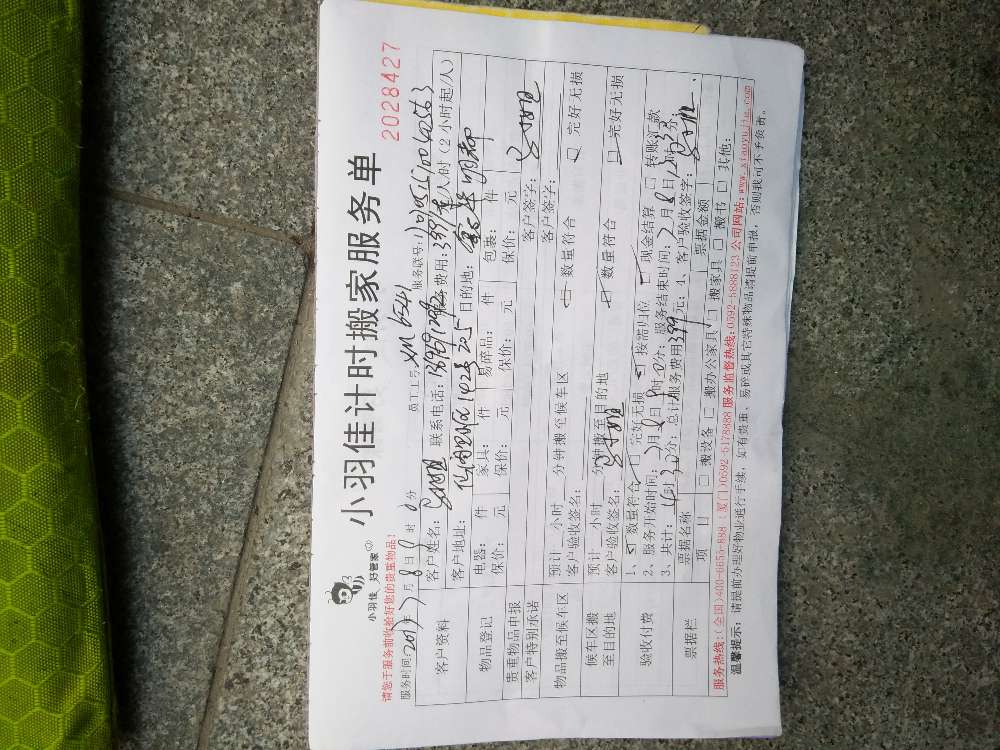 小羽佳 好管家
小羽佳计时搬家服务单
2028427
请您于服务前收验好您的贵重物品!
服务时间: 2017年7月8日8时0分 员工工号: XM6541 服务联号:
客户资料
客户姓名: 联系电话: 服务费用: 399/车/人时(2小时起/人)
客户地址: 目的地:
物品登记
电器: 件 家具: 件 易碎品: 件 包裹: 件
保价: 元 保价: 元 保价: 元 保价: 元
贵重物品申报 客户签字:
客户特别承诺 客户签字:
物品搬至候车区
预计 小时 分钟搬至候车区 数量符合 完好无损
客户验收签名:
候车区搬至目的地
预计 小时 分钟搬至目的地 数量符合 完好无损
客户验收签名:
验收付费
1、 数量符合 完好无损 按需归位 现金结算 转账汇款
2、服务开始时间: 7月8日8时0分; 服务结束时间: 7月8日12时30分;
3、共计: 4时30分; 总计服务费用399元; 4、客户验收签字:
票据栏
票据名称 票据金额
项目 搬设备 搬办公家具 搬家具 搬书 其他:
服务热线:(全国)400-6655-888 (厦门)0592-6178888 服务监督热线:0592-5888123 公司网站:www.xiaoyujia.com
温馨提示: 请提前办理好物业进行手续, 如有贵重、易碎或其它特殊物品请提前申报, 否则我司不予负责。